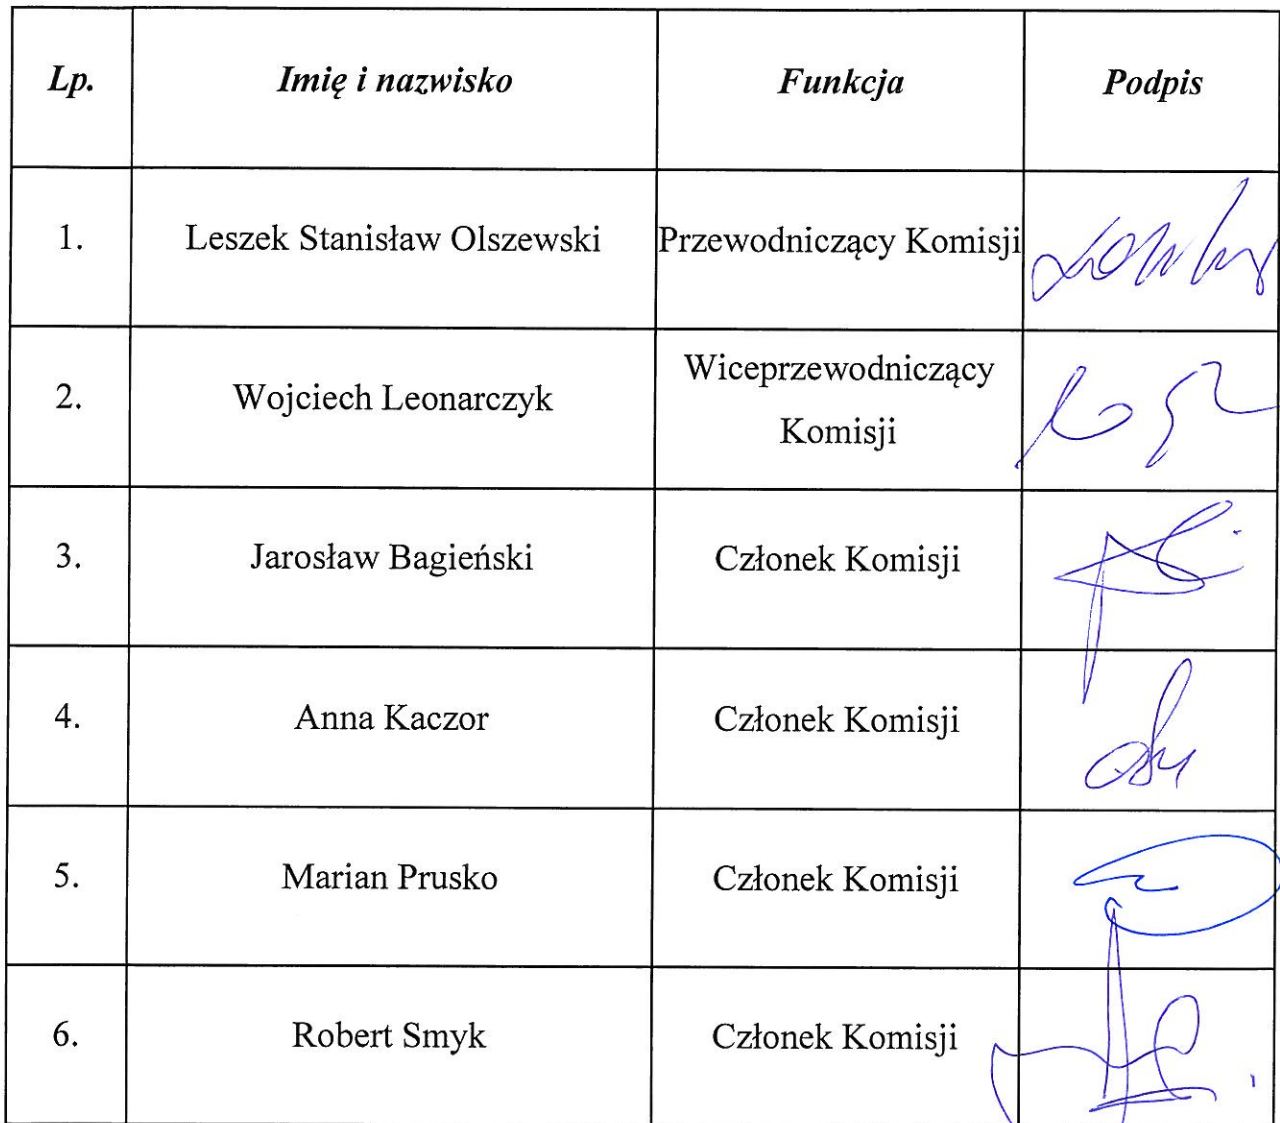 Lp. Imię i nazwisko Funkcja Podpis
1. Leszek Stanisław Olszewski Przewodniczący Komisji
2. Wojciech Leonarczyk Wiceprzewodniczący
Komisji
3. Jarosław Bagieński Członek Komisji
4. Anna Kaczor Członek Komisji
5. Marian Prusko Członek Komisji
6. Robert Smyk Członek Komisji